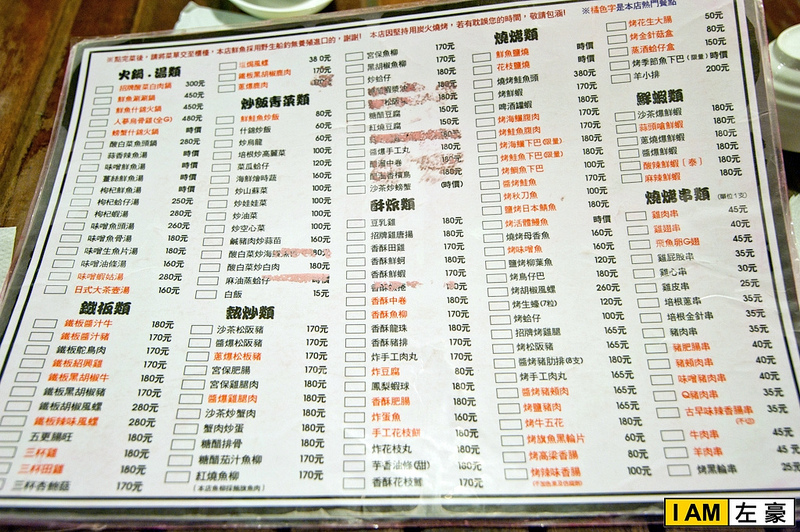 ※點完菜後，請將菜單交至櫃檯，本店鮮魚採用野生船釣無養殖進口的，謝謝! 本店因堅持用炭火燒烤，若有耽誤您的時間，敬請包涵!
※橘色字是本店熱門餐點
火鍋．湯類
招牌酸菜白肉鍋 300元
鮮魚涮涮鍋 450元
鮮魚什錦火鍋 450元
人參烏骨雞(全G) 480元
螃蟹什錦火鍋 時價
酸白菜魚頭鍋 280元
蒜香辣魚湯 時價
味噌鮮魚湯 時價
薑絲鮮魚湯 時價
枸杞鮮魚湯 時價
枸杞蛤仔湯 250元
枸杞蝦湯 280元
味噌魚頭湯 260元
味噌魚骨湯 180元
味噌生魚片湯 180元
味噌油條湯 160元
味噌蝦咕湯 280元
日式大茶壺湯 160元
鐵板類
鐵板醬汁牛 180元
鐵板醬汁豬 170元
鐵板鴕鳥肉 170元
鐵板紹興雞 170元
鐵板黑胡椒牛 180元
鐵板黑胡椒豬 170元
鐵板胡椒風螺 280元
鐵板辣味風螺 280元
五更腸旺 180元
三杯雞 180元
三杯田雞 180元
三杯杏鮑菇 170元
豆瓣風螺 380元
鐵板黑胡椒鹿肉 170元
蔥爆鹿肉
炒飯青菜類
鮮鮭魚炒飯 80元
什錦炒飯 60元
炒烏龍 80元
培根炒高麗菜 100元
菜瓜蛤仔 120元
海鮮燴時蔬 160元
炒山蘇菜 100元
炒娃娃菜 100元
炒油菜 100元
炒空心菜 100元
鹹豬肉炒蒜苗 160元
酸白菜炒海 180元
酸白菜炒白肉 180元
麻油蒸蛤仔
白飯 15元
熱炒類
沙茶松阪豬 170元
醬爆松阪豬 170元
蔥爆松板豬 170元
宮保肥腸 170元
宮保雞腿肉 170元
醬爆雞腿肉 170元
沙茶炒蟹肉 180元
蟹肉炒蛋 180元
糖醋排骨 180元
糖醋茄汁魚柳 170元
紅燒魚柳 170元
宮保魚柳 170元
黑胡椒魚柳 170元
炒蛤仔 180元
180元
松阪 180元
紅燒豆腐 150元
醬爆手工丸 180元
醋溜中卷 180元
醋溜香檳魚
沙茶炒螃蟹 (時價)
酥炸類
豆乳雞 180元
招牌雞唐揚 180元
香酥田雞 180元
香酥鮮蚵 180元
香酥鮮蝦 180元
香酥中卷 180元
香酥魚柳 180元
香酥龍珠 180元
香酥豬排 170元
炸手工肉丸 170元
炸豆腐 80元
鳳梨蝦球 180元
香酥肥腸 180元
炸蛋魚 180元
手工花枝餅 160元
炸花枝丸 180元
芋香油條(甜) 180元
香酥花枝鰭 170元
燒烤類
鮮魚鹽燒 時價
花枝鹽燒 時價
燒烤鮭魚頭 380元
烤鮮蝦 180元
啤酒罐蝦 180元
烤海鱺腹肉 180元
烤鮭魚腹肉 180元
烤海鱺下巴(限量) 180元
烤鮭魚下巴(限量) 180元
烤鯛魚下巴 100元
醬烤鮭魚 180元
烤秋刀魚 100元
鹽烤日本鯖魚 180元
烤活體鱔魚 時價
燒烤母香魚 180元
烤味噌魚 180元
鹽烤柳葉魚 180元
烤鳥仔巴 180元
烤胡椒風螺 260元
烤生蠔(7粒) 120元
烤蛤仔 120元
招牌烤雞腿 165元
烤松阪豬 165元
醬烤豬肋排(8支) 180元
烤手工肉丸 165元
醬烤豬頰肉 165元
烤鹽豬肉 165元
烤牛五花 180元
烤旗魚黑輪片 60元
烤高粱香腸 80元
烤辣味香腸 100元
烤花生大腸 50元
烤金針菇盒 80元
蒸酒蛤蛟盒 150元
烤季節魚下巴(限量) 時價
羊小排 200元
鮮蝦類
沙茶爆鮮蝦 180元
蒜頭嗆鮮蝦 180元
蔥燒爆鮮蝦 180元
醬爆鮮蝦 180元
酸辣鮮蝦(泰) 180元
麻辣鮮蝦 180元
燒烤串類 (單位1支)
雞肉串 45元
雞翅串 40元
飛魚卵G翅 45元
雞屁股串 35元
雞心串 30元
雞皮串 25元
培根蔥串 35元
培根金針串 35元
豬肉串 35元
豬肥腸串 40元
豬頰肉串 40元
味噌豬肉串 40元
Q豬肉串 35元
古早味辣香腸串 35元
牛肉串 45元
羊肉串 45元
烤黑輪串 25元
I AM 左豪